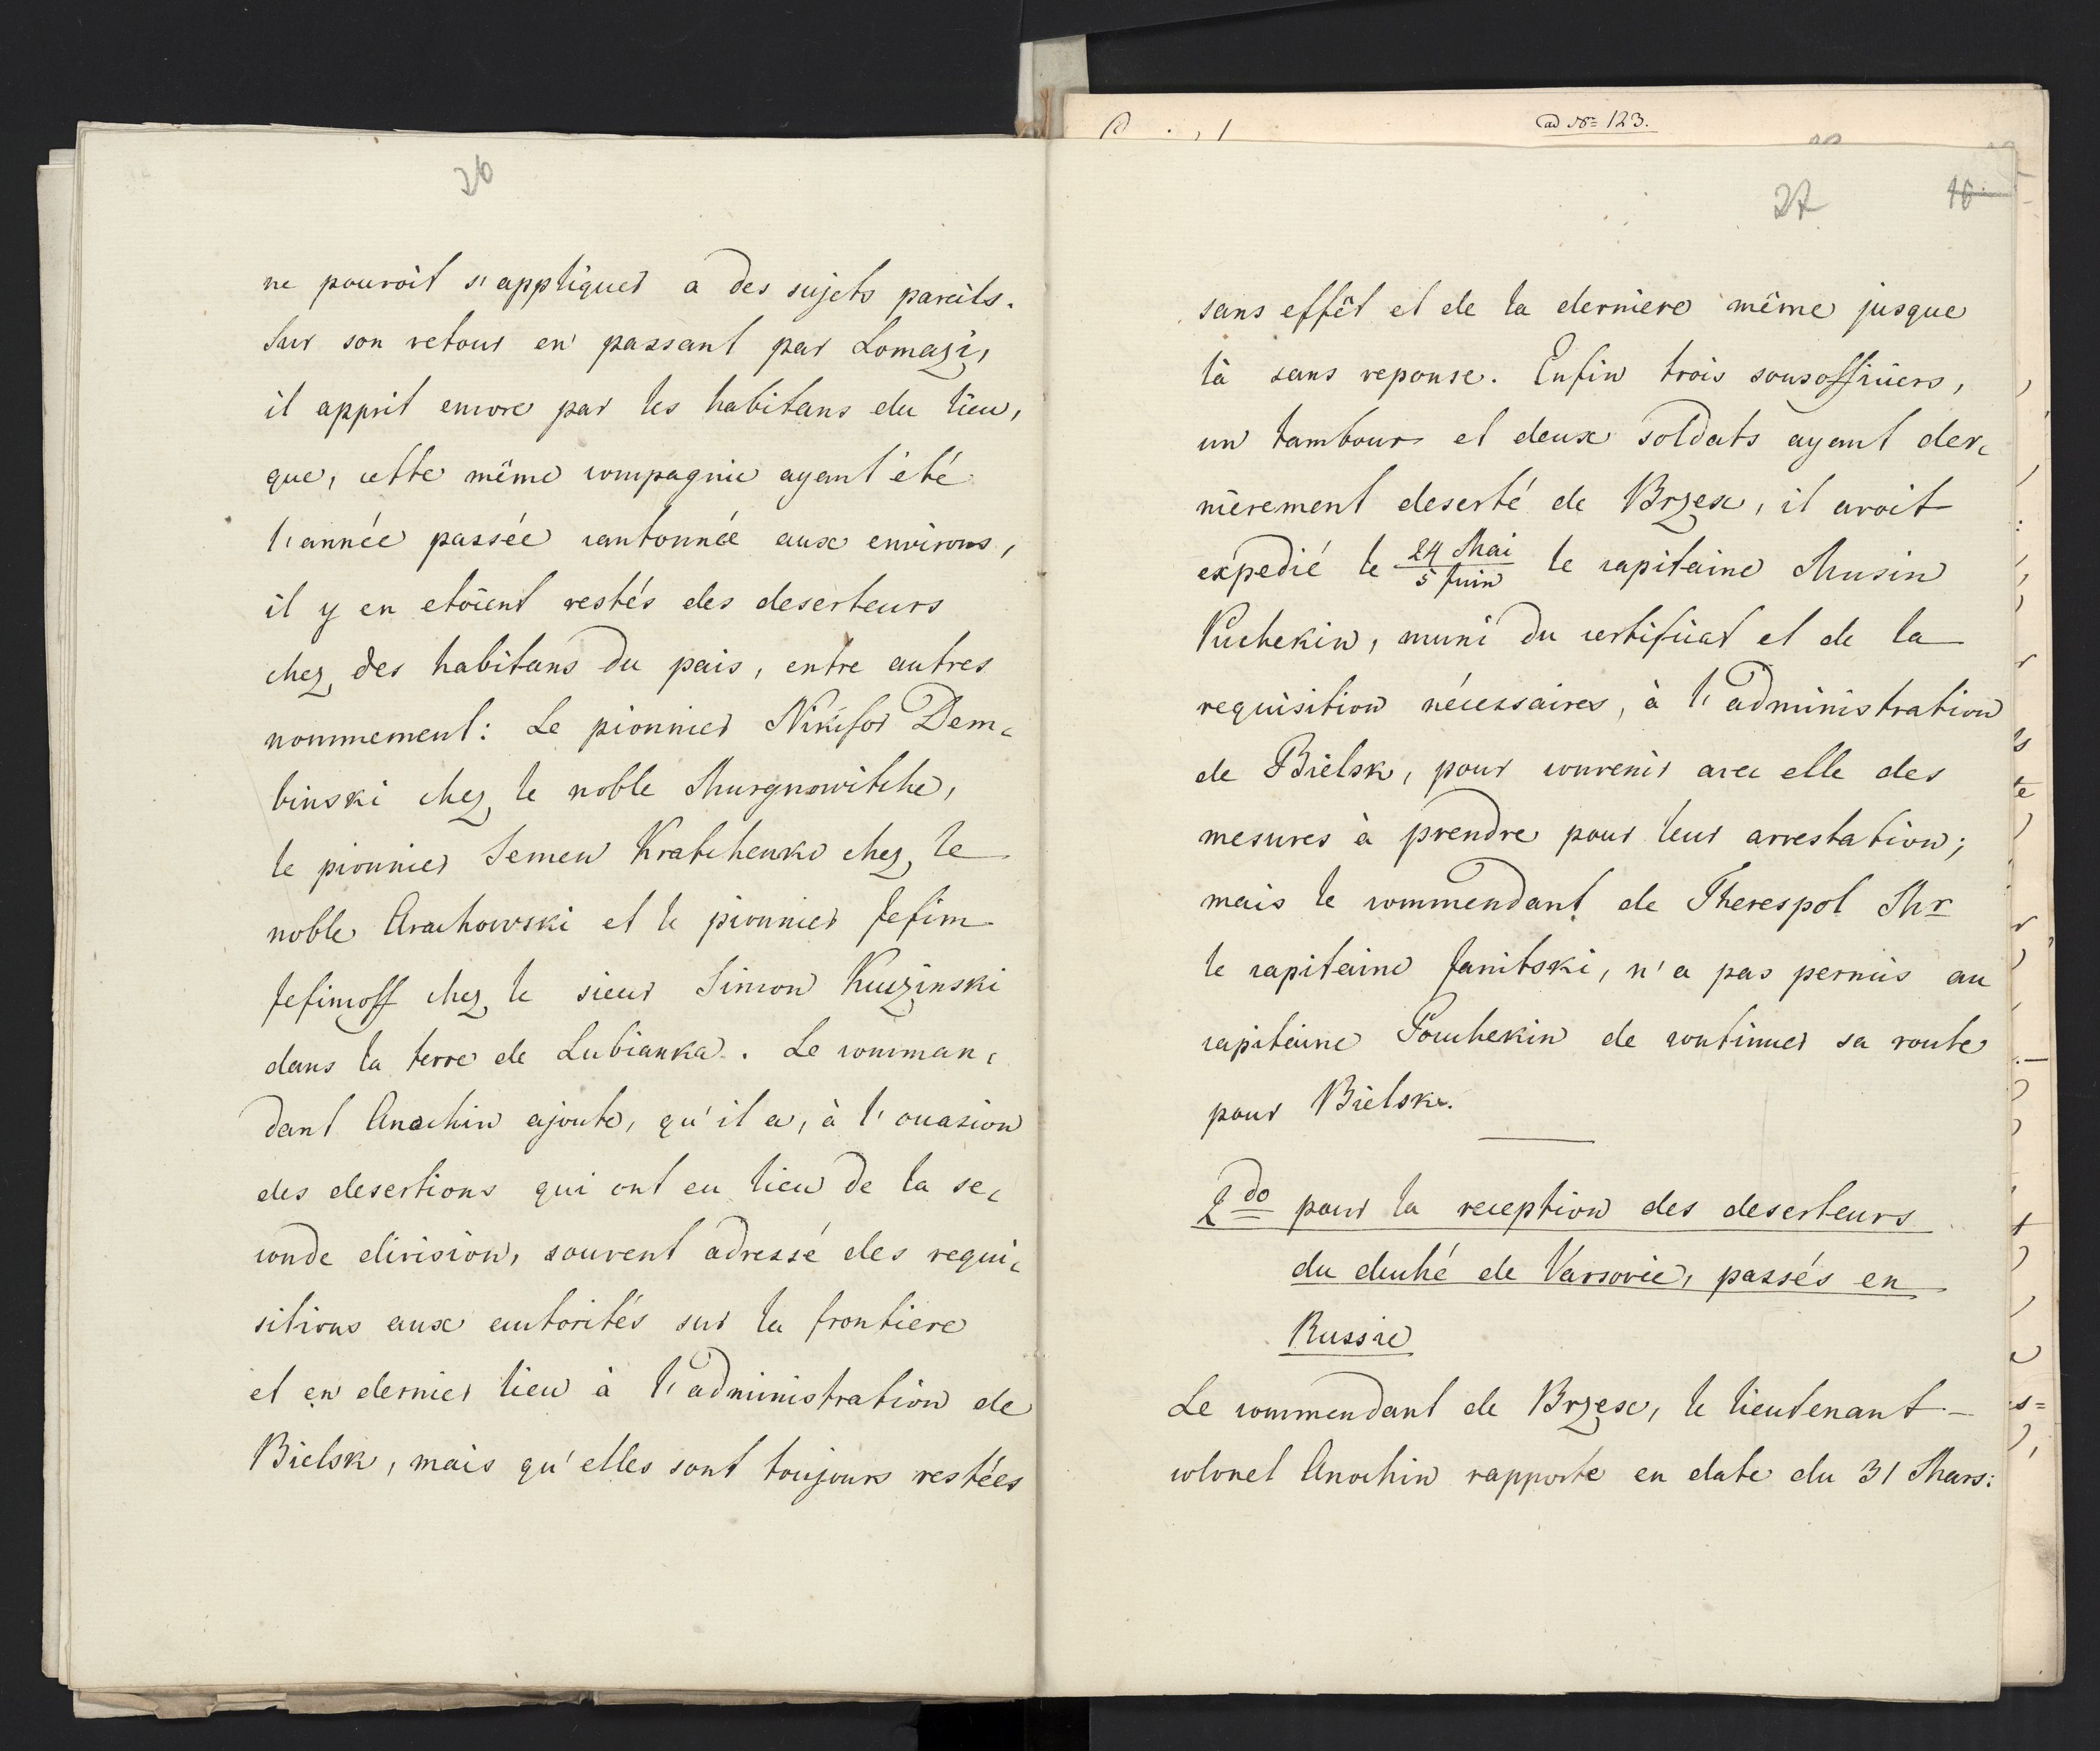 26
ne pouroit s'appliquer a des sujets pareils.
Sur son retour en passant par Lomazi,
il apprit encore par les habitans du lieu,
que, cette même compagnie ayant été
l'année passée cantonnée aux environs,
il y en etoient restés des deserteurs
chez des habitans du pais, entre autres
nommement: Le pionnier Nikifor Dem-
binski chez le noble Murgnowitche,
le pionnier Semen Kratchenko chez le
noble Arachowski et le pionnier Jefim
Jefimoff chez le sieur Simon Kuczinski
dans la terre de Lubianka. Le comman-
dant Anochin ajoute, qu'il a, à l'occasion
des desertions qui ont eu lieu de la se-
conde division, souvent adressé des requi-
sitions aux autorités sur la frontiere
et en dernier lieu à l'administration de
Bielsk, mais qu'elles sont toujours restées
ad No 123.
27
16
sans effêt et de la derniere même jusque
là sans reponse. Enfin trois sousofficiers,
un tambour et deux soldats ayant der-
nièrement deserté de Brzesc, il avoit
expedié le 24 Mai / 5 Juin le capitaine Musin
Puchekin, muni du certificat et de la
requisition nécessaires, à l'administration
de Bielsk, pour convenir avec elle des
mesures à prendre pour leur arrestation;
mais le commendant de Therespol Mr
le capitaine Janitski, n'a pas permis au
capitaine Pouchekin de continuer sa route
pour Bielsk.
2do pour la reception des deserteurs
du duché de Varsovie, passés en
Russie
Le commendant de Brzesc, le lieutenant-
colonel Anochin rapporte en date du 31 Mars: